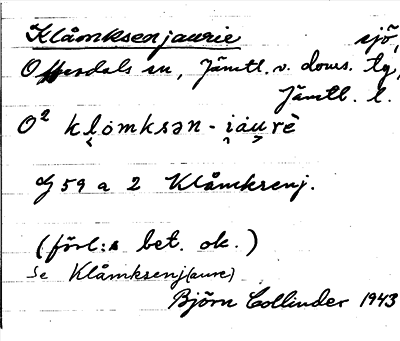 Klåmksenjaurie sjö,
Offerdals sn, Jämtl. v. doms. tg,
Jämtl. l.
O² klomksən-iaurè
G 59 a 2 Klåmksenj.
(förl:s bet. ok.)
Se Klåmksenj(aure)
Björn Collinder 1943